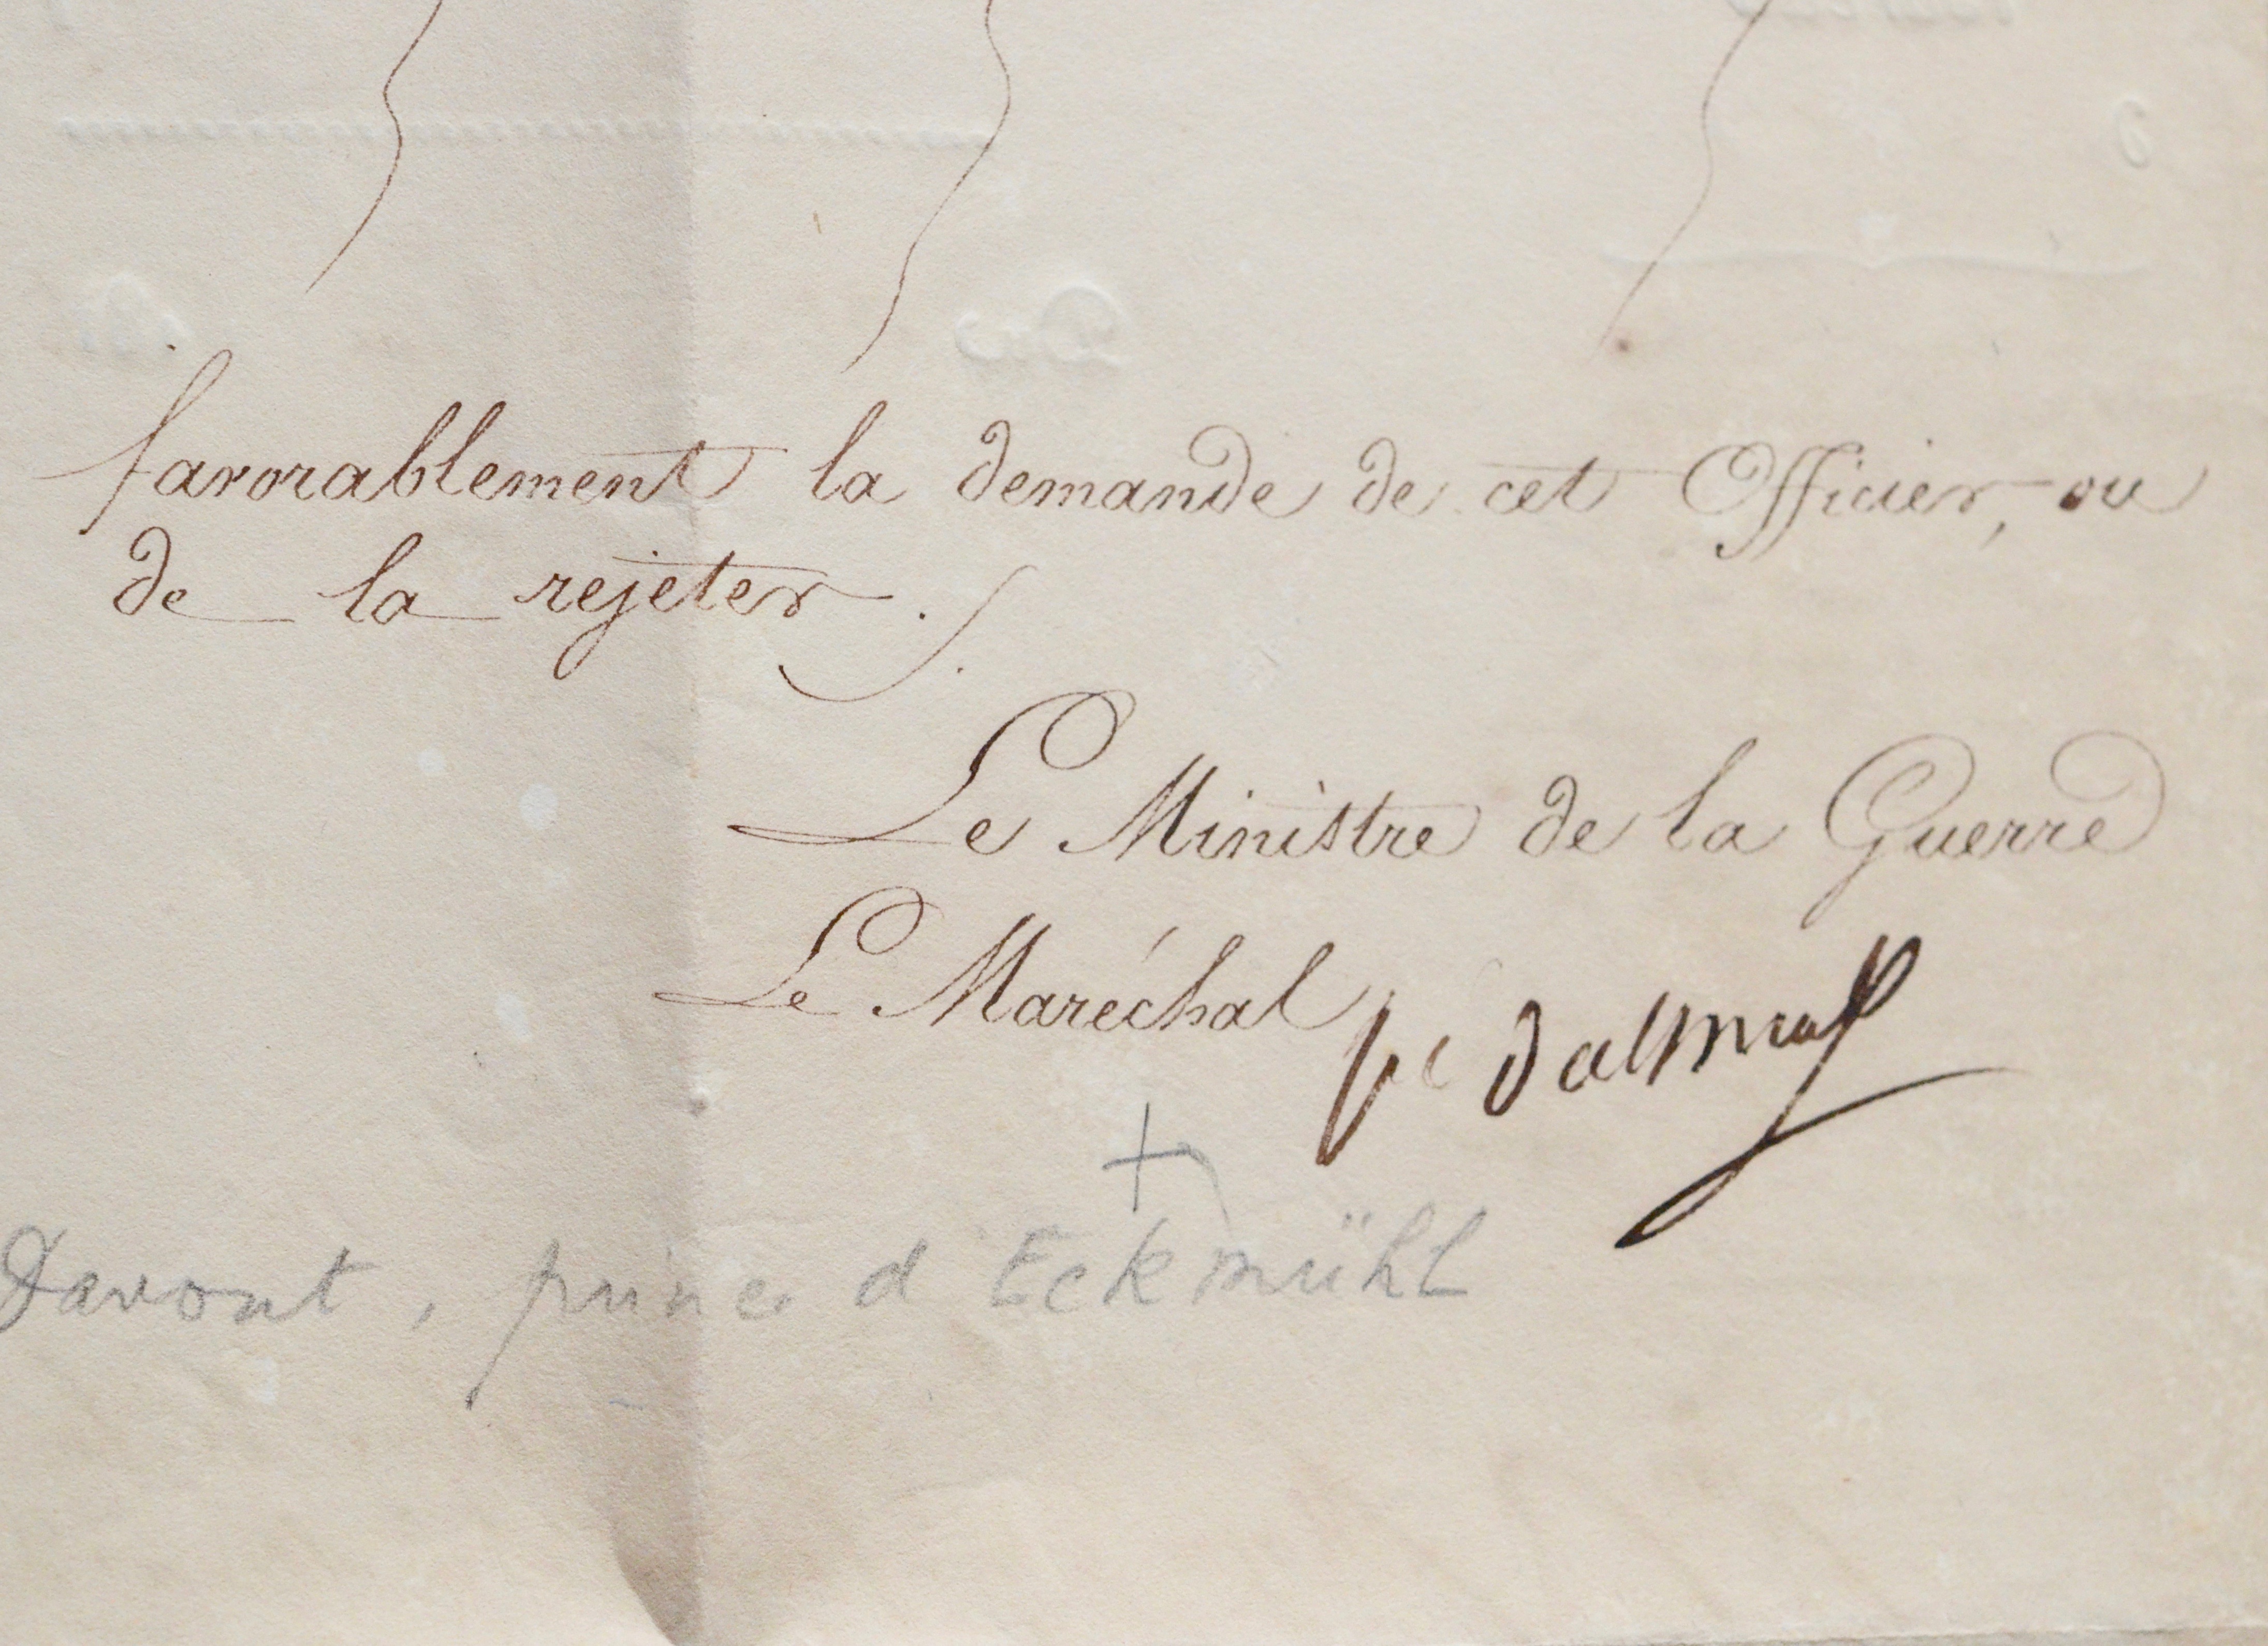 favorablement la demande de cet Officier, ou
de la rejeter ./.
Le Ministre de la Guerre
Le Maréchal
Davout, prince d'Eckmühl